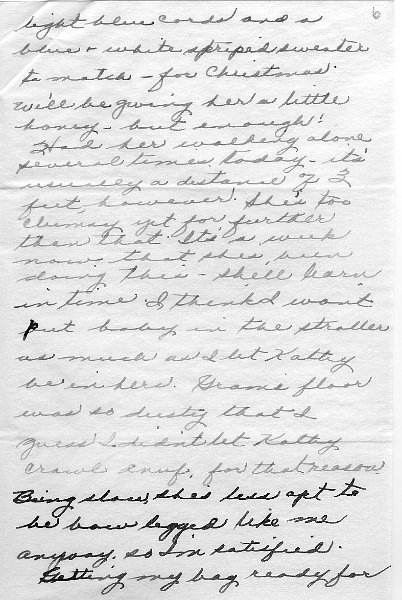 6
light blue cords and a
blue + white striped sweater
to match - for Christmas.
We'll be giving her a little
money - but enough!
Had her walking alone
several times today - it's
usually a distance of 2
feet, however. She's too
clumsy yet for further
than that. It's a week
now, that she's been
doing this - she'll learn
in time. I think I won't
put baby in the stroller
as much as I let Kathy
be in hers. Gram's floor
was so dusty that I
guess I didn't let Kathy
crawl enuf, for that reason.
Being slow, she's less apt to
be bow legged like me
anyway, so I'm satisfied.
Getting my bag ready for